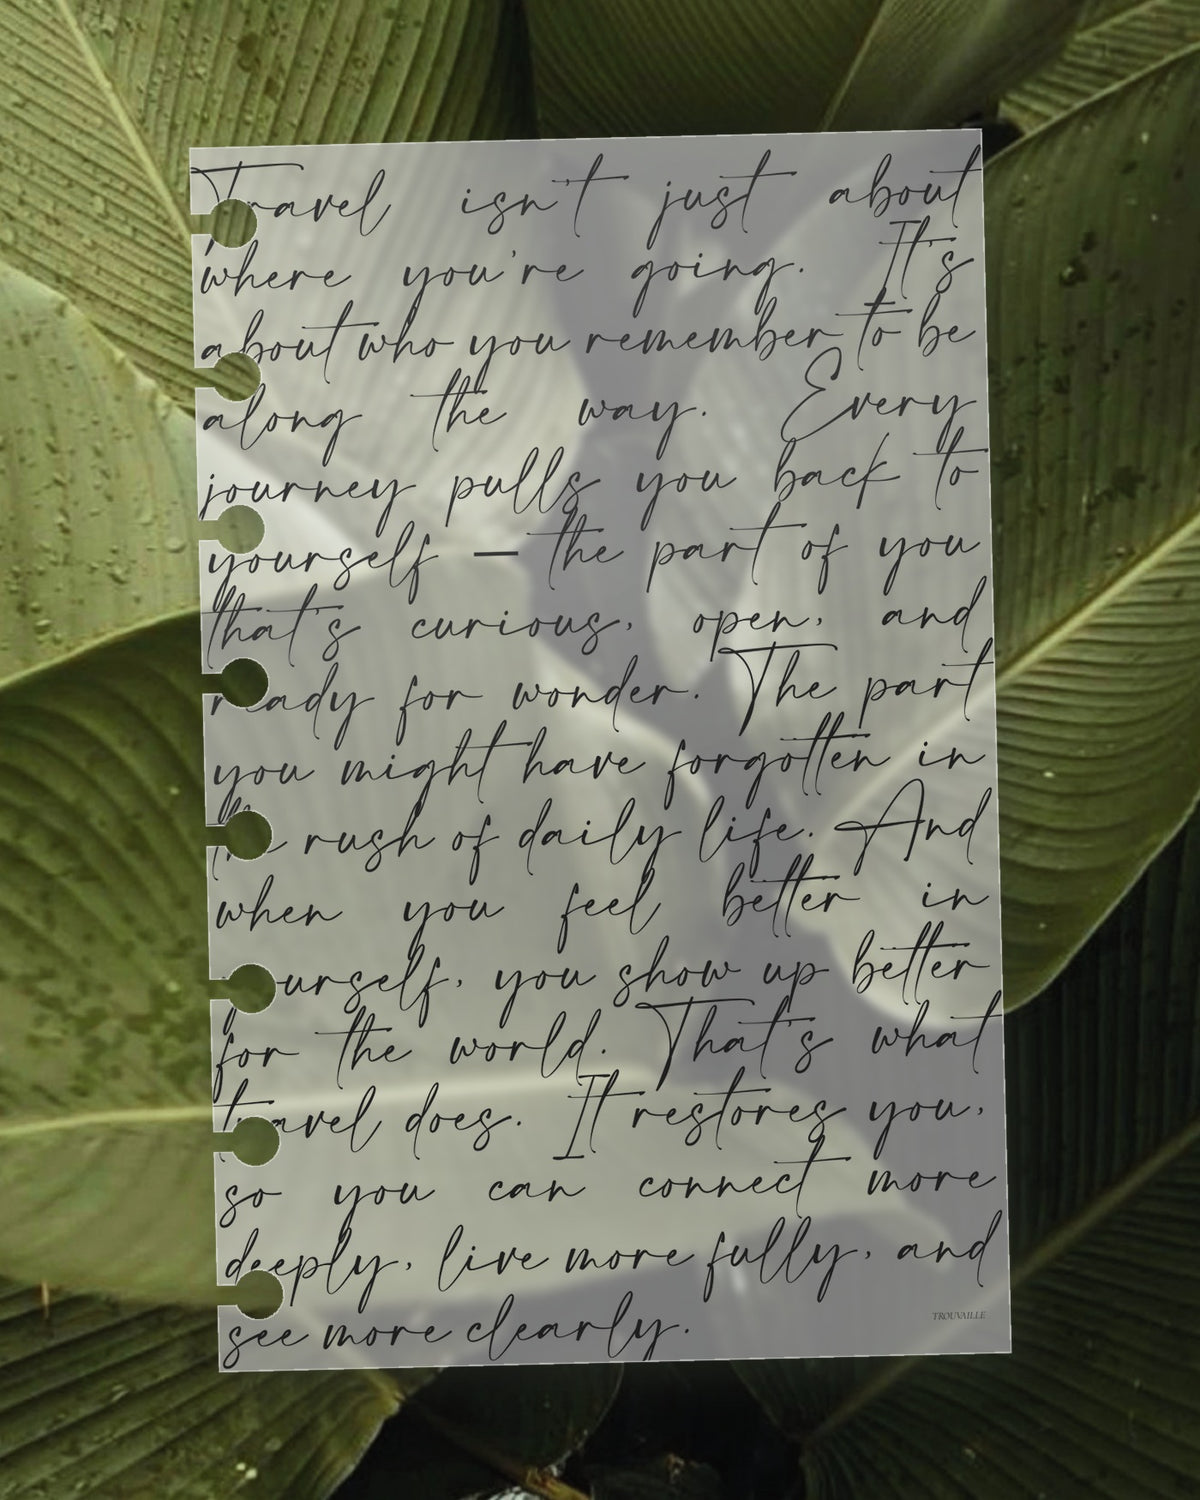 Travel isn't just about
where you're going. It's
about who you remember to be
along the way. Every
journey pulls you back to
yourself — the part of you
that's curious, open, and
ready for wonder. The part
you might have forgotten in
the rush of daily life. And
when you feel better in
yourself, you show up better
for the world. That's what
travel does. It restores you,
so you can connect more
deeply, live more fully, and
see more clearly.
TROUVAILLE